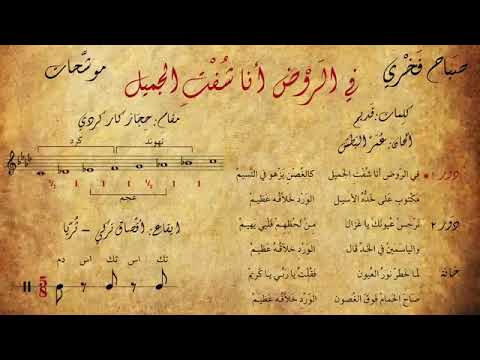 صَبَاح فَخْرِي
في الرَوْض أنا شُفْتِ الجميل
موشَّحات
كلمات: قَديم
ألحان: عُمَر البَطْش
مقام: حِجَاز كار كردي
نهوند
كرد
عجم
إيقاع: أقْصَاق تركي - ثُريّا
دم اس تك اس تك
دَوْر ١
في الرَوض أنا شُفْت الجَميل كالغُصنْ يزْهو في النَسيمْ
مكْتوب على خَدُّه الأسيل الوَرْد خلاّقُه عَظيمْ
دَوْر ٢
نَرجسْ عُيونَك يا غَزال منْ لَحظهمْ قَلبي يَهيمْ
والياسمين في الخَد قَال الوَرْد خلاّقُه عَظيمْ
خَانة
لما خَطَرْ نورُ العُيون فقُلْتُ يا ربّي يا كَريمْ
صاحَ الحَمامْ فَوقَ الغُصون الوَرْد خلاّقُه عَظيمْ